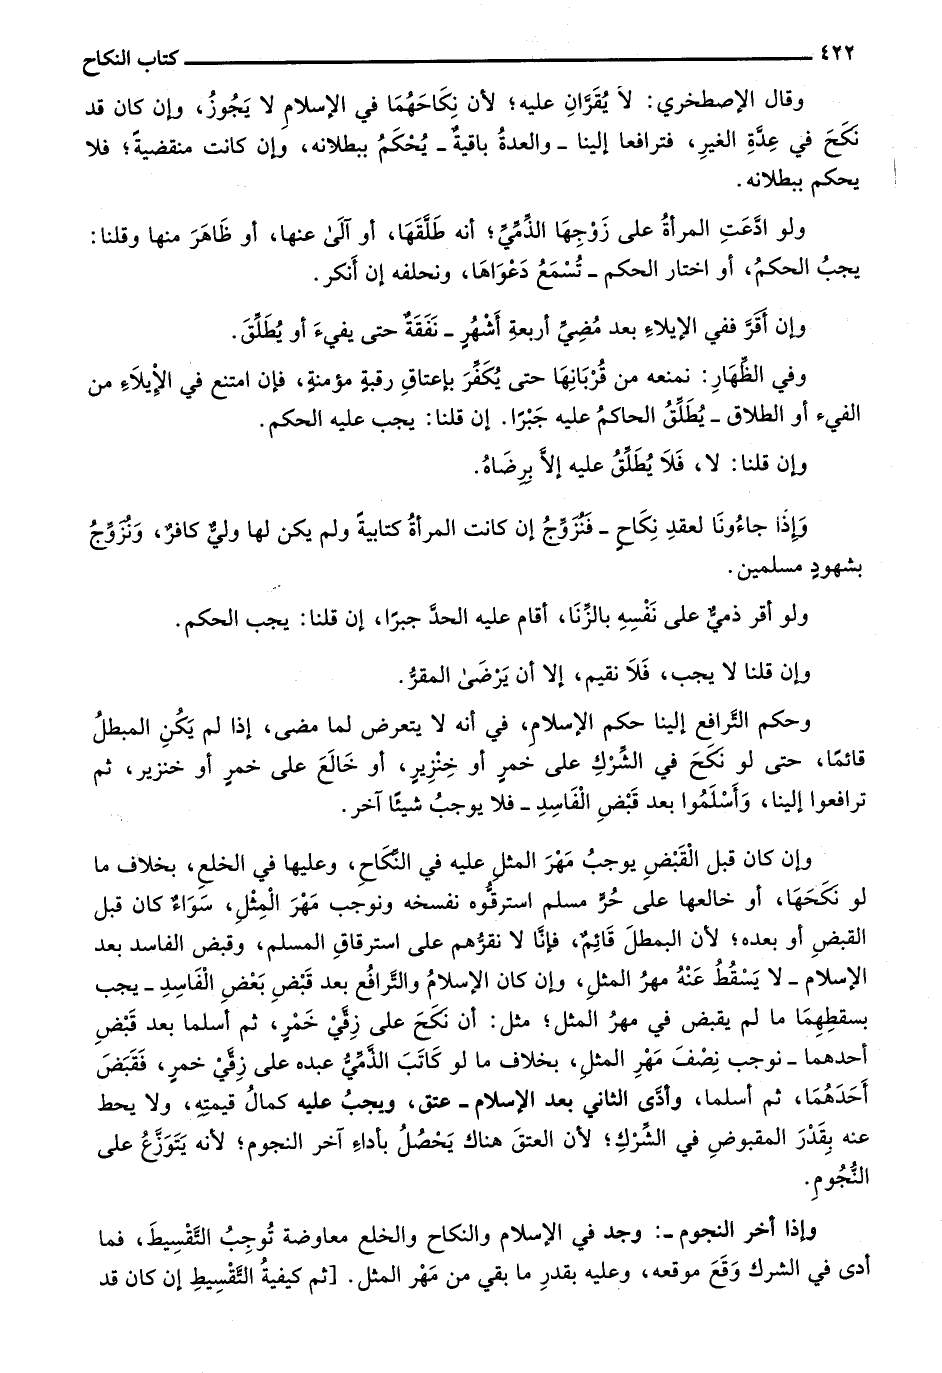 ٤٢٢ كتاب النكاح
وقال الإصطخري: لاَ يُقَرَّانِ عليه؛ لأن نِكَاحَهُمَا في الإسلامِ لا يَجُوزُ، وإن كان قد
نَكَحَ في عِدَّةِ الغيرِ، فترافعا إلينا ـ والعدةُ باقيةٌ ـ يُحْكَمُ ببطلانه، وإن كانت منقضيةً؛ فلا
يحكم ببطلانه.
ولو ادَّعَتِ المرأةُ على زَوْجِهَا الذِّمِّيِّ؛ أنه طَلَّقَهَا، أو آلَىٰ عنها، أو ظَاهَرَ منها وقلنا:
يجبُ الحكمُ، أو اختار الحكم ـ تُسْمَعُ دَعْوَاهَا، ونحلفه إن أنكر.
وإن أَقَرَّ ففي الإيلاءِ بعد مُضِيِّ أربعةِ أَشْهُرٍ ـ نَفَقَةٌ حتى يفيءَ أو يُطَلِّقَ.
وفي الظِّهَارِ: نمنعه من قُرْبَانِهَا حتى يُكَفِّرَ بإعتاقِ رقبةٍ مؤمنةٍ، فإن امتنع في الإِْيلَاءِ من
الفيء أو الطلاق ـ يُطَلِّقُ الحاكمُ عليه جَبْرًا. إن قلنا: يجب عليه الحكم.
وإن قلنا: لا، فَلَا يُطَلِّقُ عليه إلاَّ بِرِضَاهُ.
وَإِذَا جاءُونَا لعقدِ نِكَاحٍ ـ فَنُزَوِّجُ إن كانت المرأةُ كتابيةً ولم يكن لها وليٌّ كافرٌ، وَنُزَوِّجُ
بشهودٍ مسلمين.
ولو أقر ذميٌّ على نَفْسِهِ بالزِّنَا، أقام عليه الحدَّ جبرًا، إن قلنا: يجب الحكم.
وإن قلنا لا يجب، فَلَا نقيم، إلا أن يَرْضَىٰ المقرُّ.
وحكم التَّرافع إلينا حكم الإسلام، في أنه لا يتعرض لما مضى، إذا لم يَكُنِ المبطلُ
قائمًا، حتى لو نَكَحَ في الشِّرْكِ على خمرٍ أو خِنْزِيرٍ، أو خَالَعَ على خمرٍ أو خنزير، ثم
ترافعوا إلينا، وَأَسْلَمُوا بعد قَبْضِ الْفَاسِدِ ـ فلا يوجبُ شيئًا آخر.
وإن كان قبل الْقَبْضِ يوجبُ مَهْرَ المثلِ عليه في النِّكَاحِ، وعليها في الخلع، بخلاف ما
لو نَكَحَهَا، أو خالعها على حُرٍّ مسلم استرقُّوه نفسخه ونوجب مَهْرَ الْمِثْلِ، سَوَاءٌ كان قبل
القبضِ أو بعده؛ لأن البمطلَ قَائِمٌ، فإنَّا لا نقرُّهم على استرقاقِ المسلم، وقبض الفاسد بعد
الإسلام ـ لا يَسْقُطُ عَنْهُ مهرُ المثلِ، وإن كان الإسلامُ والتَّرافُع بعد قَبْضِ بَعْضِ الْفَاسِدِ ـ يجب
بسقطهِمَا ما لم يقبض في مهرُ المثل؛ مثل: أن نَكَحَ على زِقَّيْ خَمْرٍ، ثم أسلما بعد قَبْضِ
أحدهما ـ نوجب نِصْفَ مَهْرِ المثلِ، بخلاف ما لو كَاتَبَ الذِّمِّيُّ عبده على زِقَّيْ خمرٍ، فَقَبَضَ
أَحَدَهُمَا، ثم أسلما، وأدَّى الثاني بعد الإسلام ـ عتق، ويجبُ عليه كمالُ قيمتِهِ، ولا يحط
عنه بِقَدْرَ المقبوضِ في الشِّرْكِ؛ لأن العتقَ هناك يَحْصُلُ بأداءِ آخر النجوم؛ لأنه يَتَوَزَّعُ على
النُّجُومِ.
وإذا أخر النجوم ـ: وجد في الإسلام والنكاح والخلع معاوضة تُوجِبُ التَّقْسِيطَ، فما
أدى في الشرك وَقَعَ موقعه، وعليه بقدرِ ما بقي من مَهْر المثل. [ثم كيفيةُ التَّقْسِيطِ إن كان قد